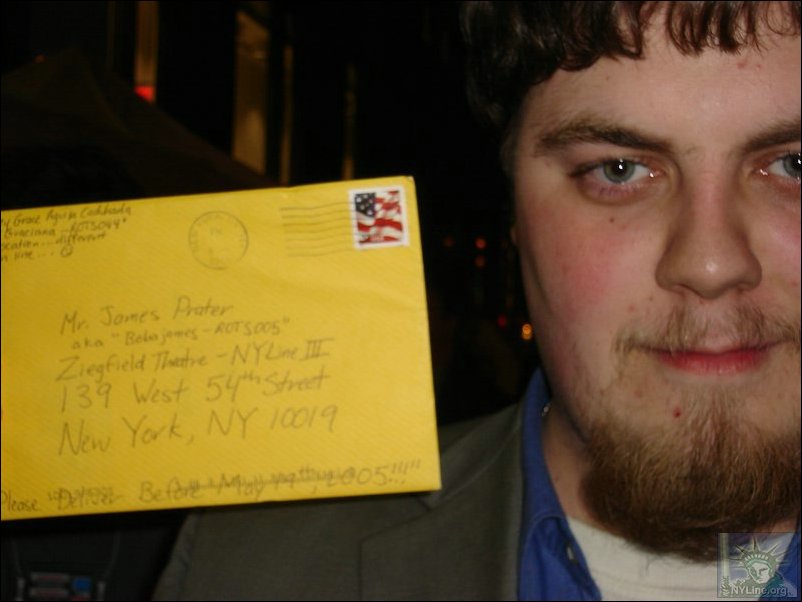 Grace
Graciana - ROTS044"
location... different
in line...
Mr. James Prater
aka "Bobajames - ROTS005"
Ziegfield Theatre - NYLine III
139 West 54th Street
New York, NY 10019
Please Deliver Before May 19th, 2005!!!"
NYLine.org